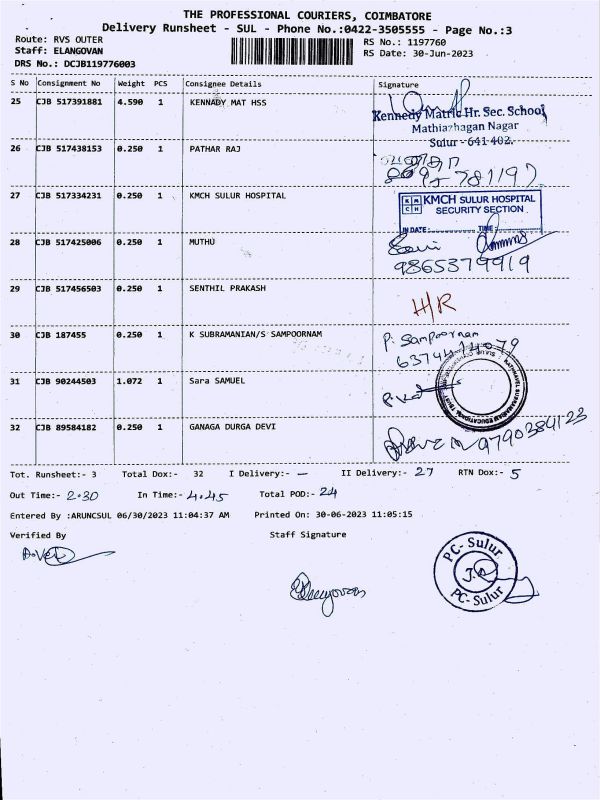 THE PROFESSIONAL COURIERS, COIMBATORE
Delivery Runsheet - SUL - Phone No.:0422-3505555 - Page No.:3
Route: RVS OUTER
Staff: ELANGOVAN
DRS No.: DCJB119776003
RS No.: 1197760
RS Date: 30-Jun-2023
S No Consignment No Weight PCS Consignee Details Signature
25 CJB 517391881 4.590 1 KENNADY MAT HSS
Kennedy Matric Hr. Sec. School
Mathiazhagan Nagar
Sulur - 641 402.
26 CJB 517438153 0.250 1 PATHAR RAJ
27 CJB 517334231 0.250 1 KMCH SULUR HOSPITAL
KMCH SULUR HOSPITAL
SECURITY SECTION
IN DATE: TIME:
28 CJB 517425006 0.250 1 MUTHU
9865379919
29 CJB 517456503 0.250 1 SENTHIL PRAKASH
H/R
30 CJB 187455 0.250 1 K SUBRAMANIAN/S SAMPOORNAM
P. Sampoornam
6374414079
31 CJB 90244503 1.072 1 Sara SAMUEL
32 CJB 89584182 0.250 1 GANAGA DURGA DEVI
9790384123
Tot. Runsheet:- 3 Total Dox:- 32 I Delivery:- — II Delivery:- 27 RTN Dox:- 5
Out Time:- 2.30 In Time:- 4.45 Total POD:- 24
Entered By :ARUNCSUL 06/30/2023 11:04:37 AM Printed On: 30-06-2023 11:05:15
Verified By Staff Signature
PC- Sulur
PC- Sulur